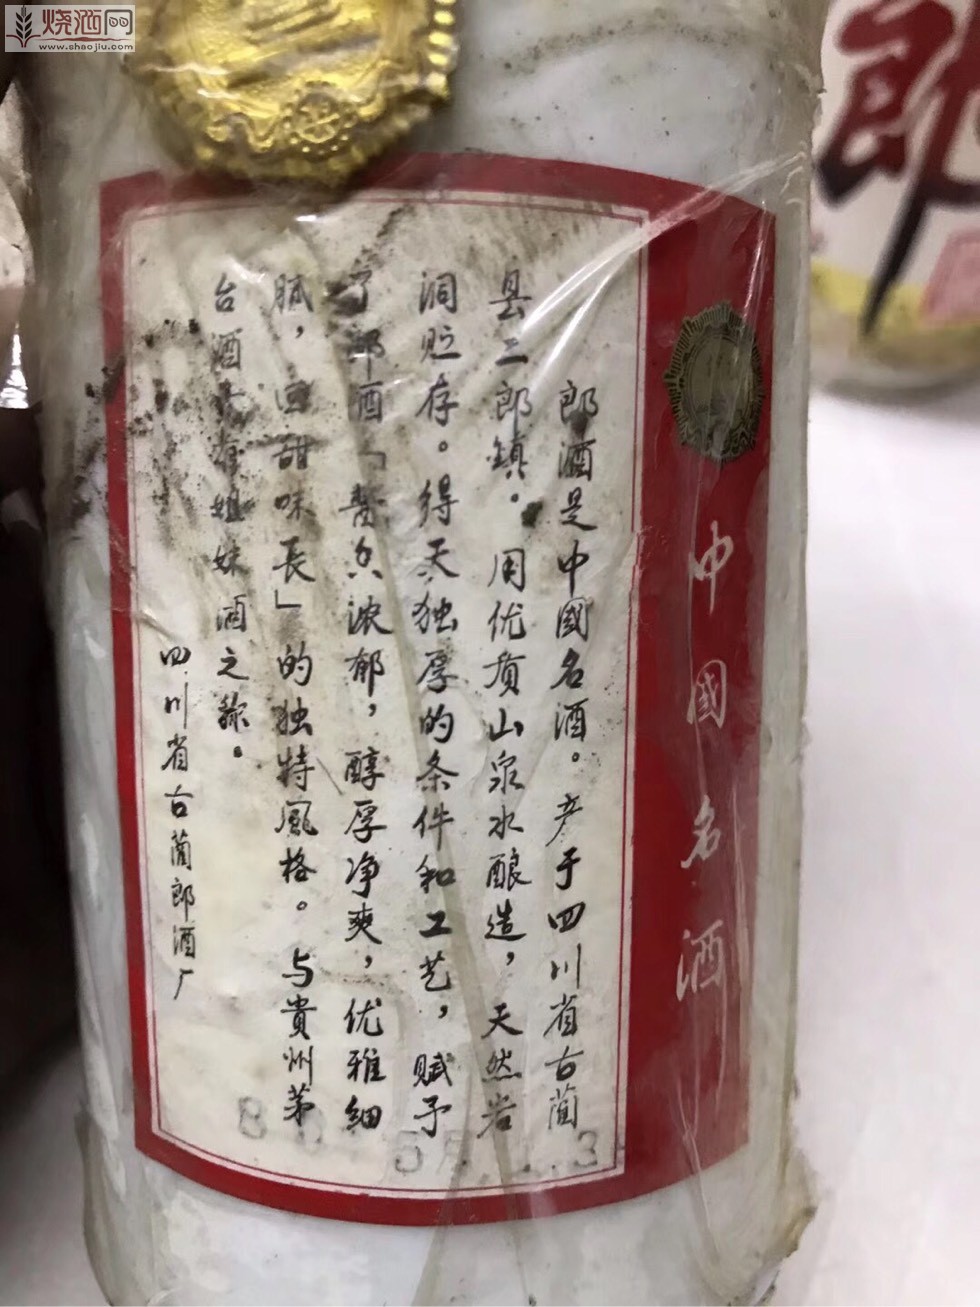 烧酒网
www.shaojiu.com
郎
中國名酒
郎酒是中國名酒。产于四川省古蔺
县二郎镇。用优质山泉水酿造，天然岩
洞贮存。得天独厚的条件和工艺，赋予
了郎酒「酱香浓郁，醇厚净爽，优雅细
腻，回甜味長」的独特風格。与貴州茅
台酒素有姐妹酒之称。
四川省古蔺郎酒厂